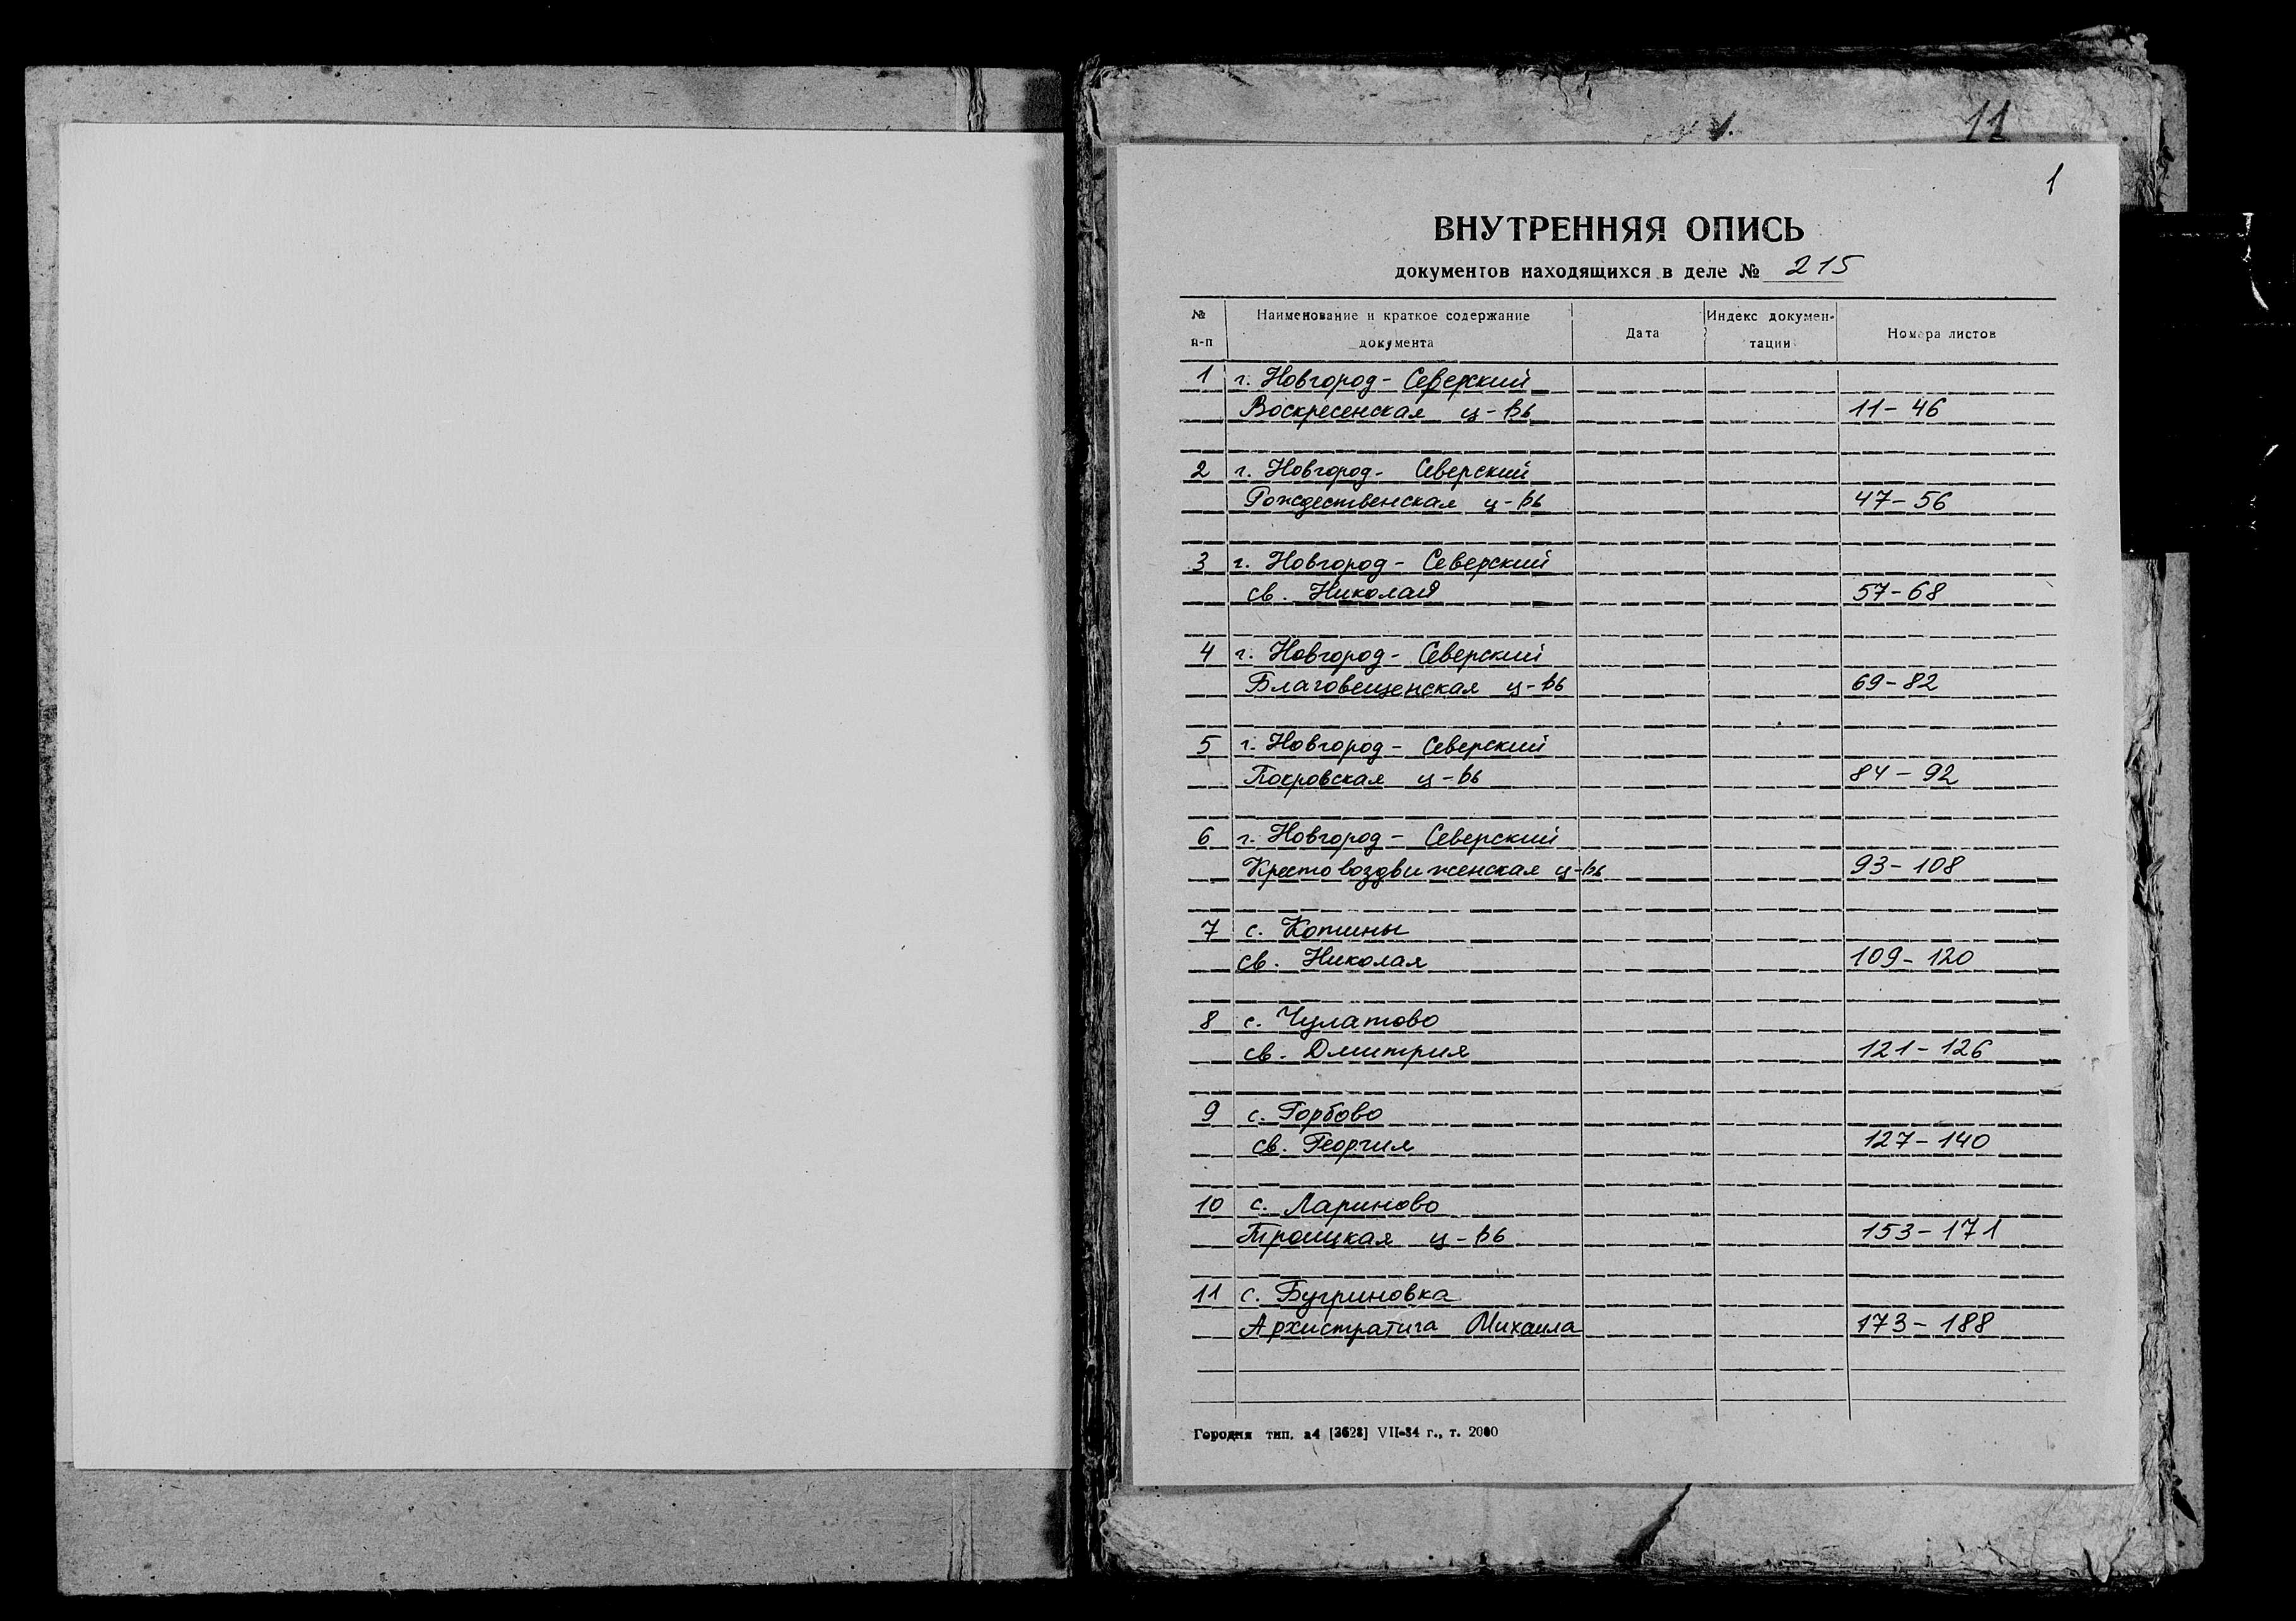 11
1
ВНУТРЕННЯЯ ОПИСЬ
документов находящихся в деле № 215
№ п-п Наименование и краткое содержание документа Дата Индекс докумен-тации Номера листов
1 г. Новгород-Северский
Воскресенская ц-вь 11-46
2 г. Новгород- Северский
Рождественская ц-вь 47-56
3 г. Новгород- Северский
св. Николая 57-68
4 г. Новгород- Северский
Благовещенская ц-вь 69-82
5 г. Новгород- Северский
Покровская ц-вь 84-92
6 г. Новгород- Северский
Крестовоздвиженская ц-вь 93-108
7 с. Котины
св. Николая 109-120
8 с. Чулатово
св. Дмитрия 121-126
9 с. Горбово
св. Георгия 127-140
10 с. Лариново
Троицкая ц-вь 153-171
11 с. Бугриновка
Архистратига Михаила 173-188
Городня тип. з4 [3628] VII-84 г., т. 2000